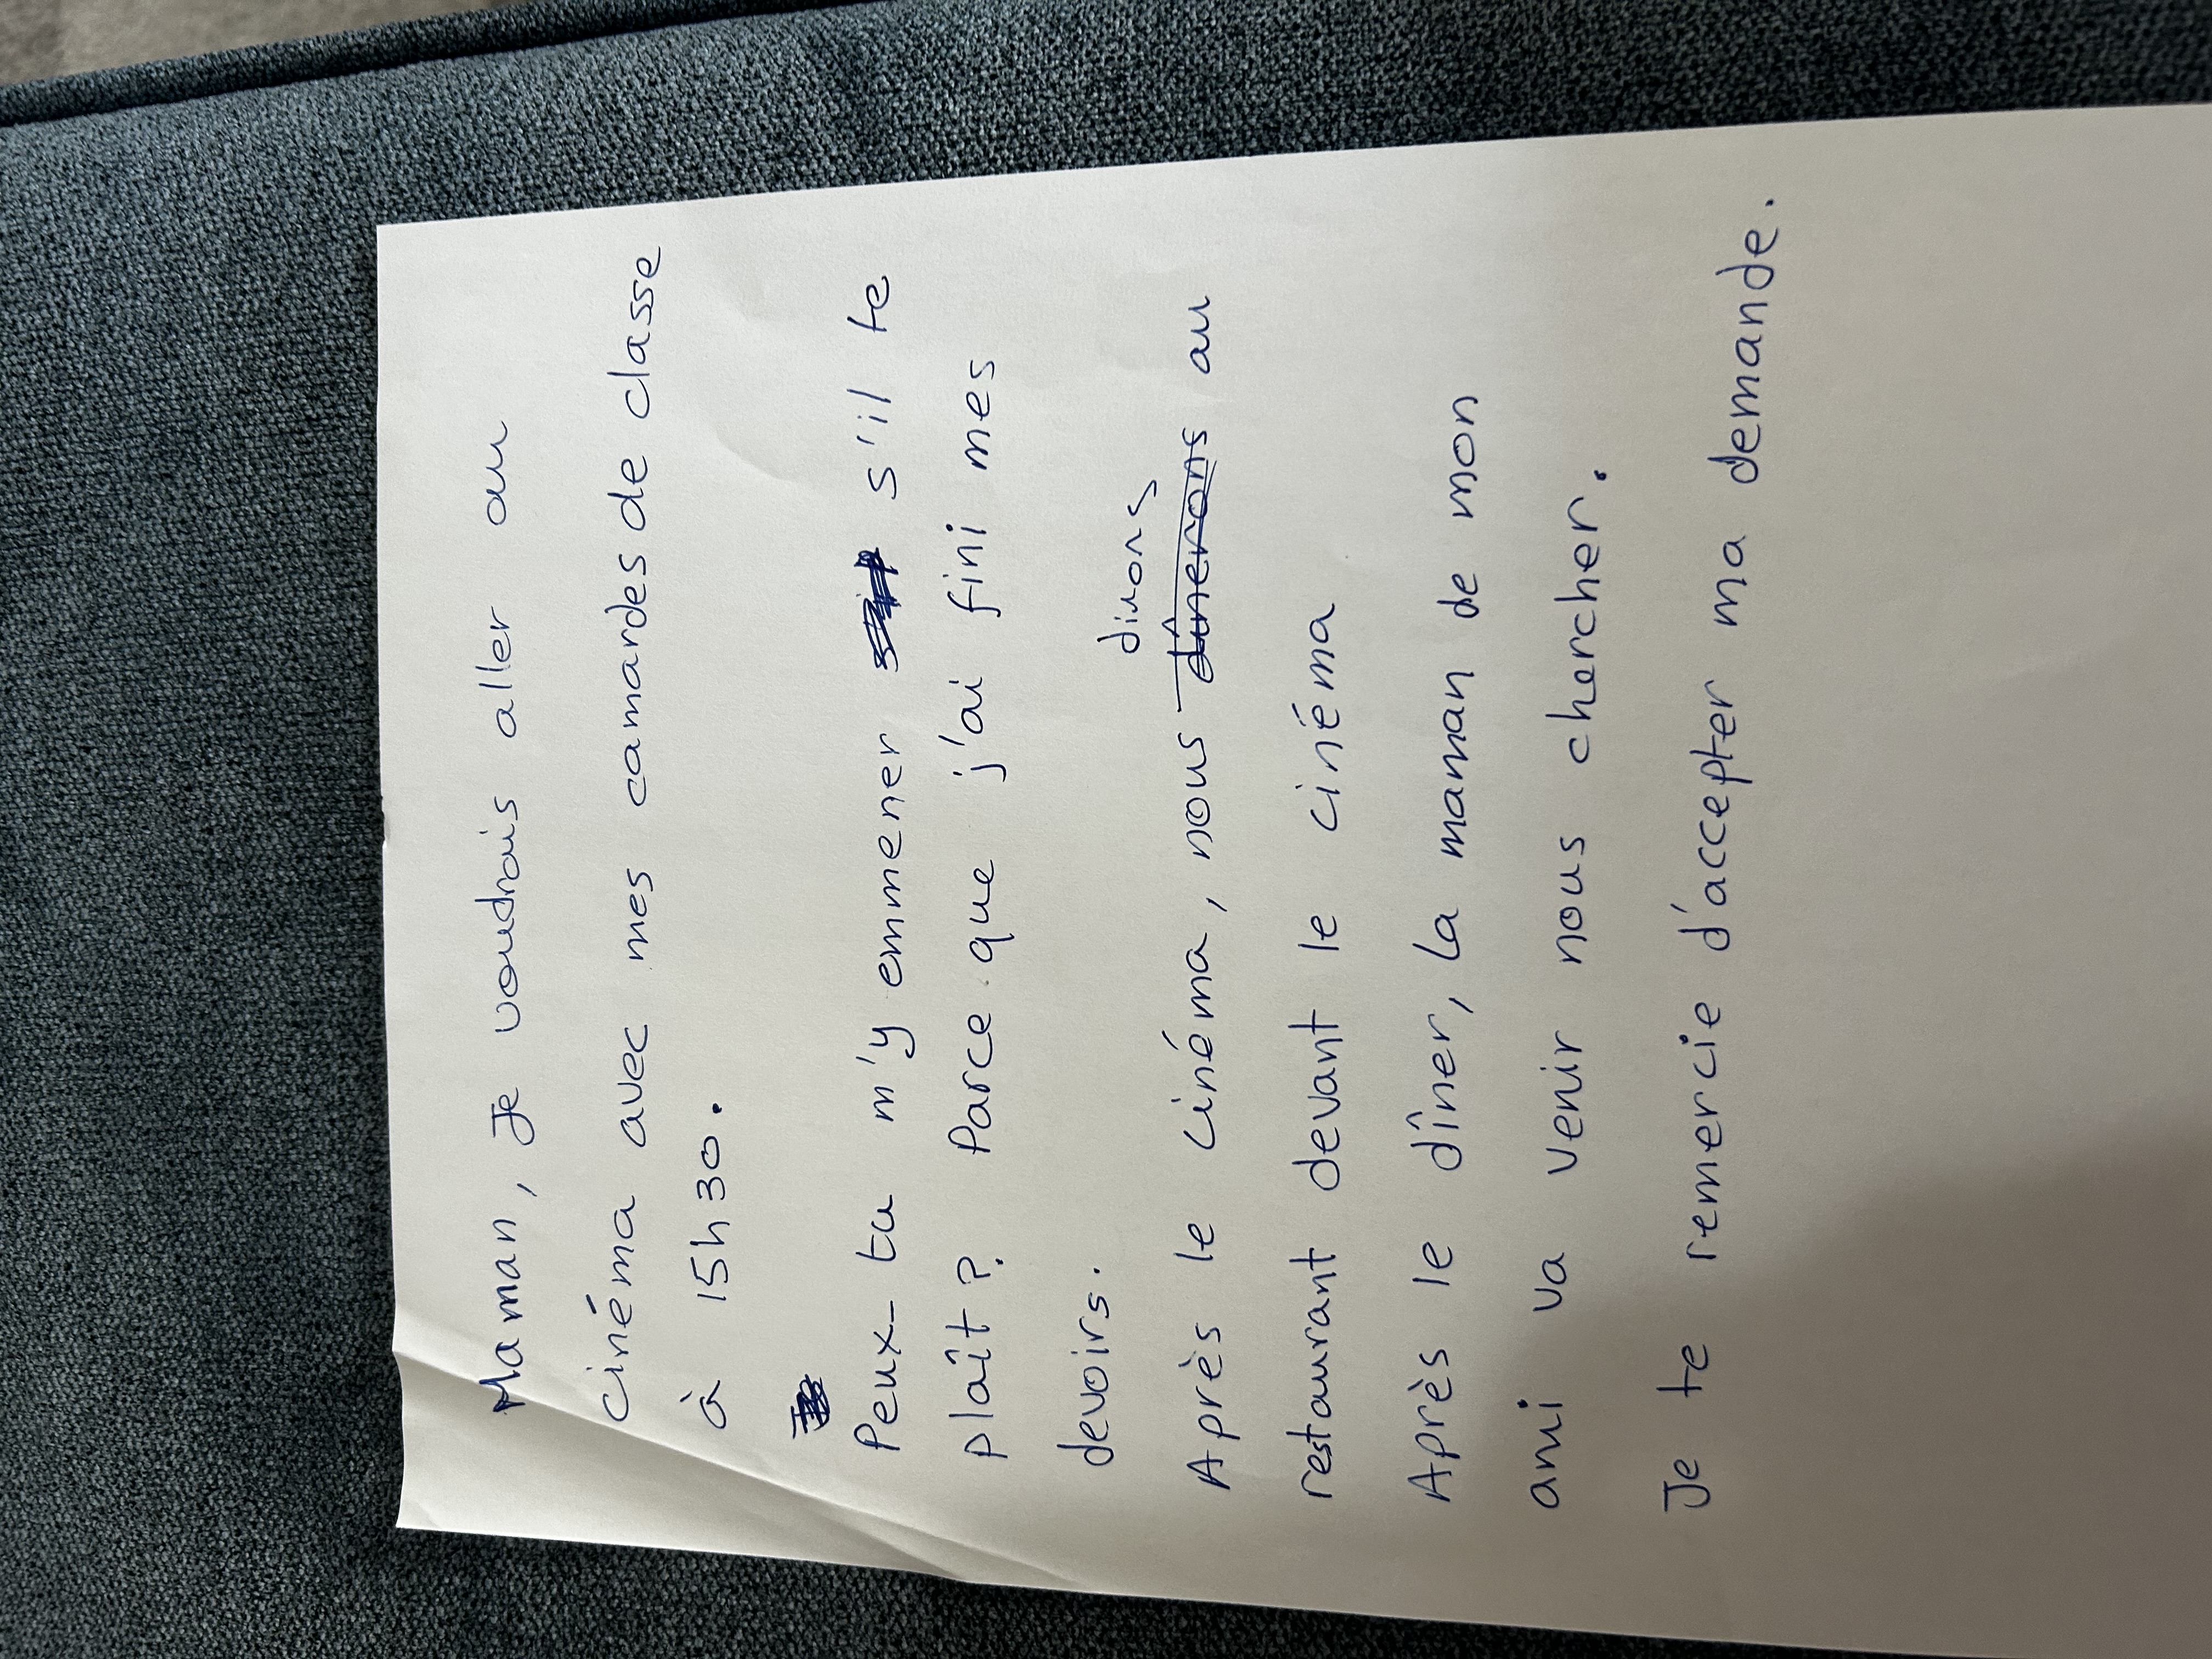 Maman, Je voudrais aller au
cinéma avec mes camardes de classe
à 15h30.
Peux-tu m'y emmener s'il te
plaît? Parce que j'ai fini mes
devoirs.
dirons
Après le cinéma, nous dînerons au
restaurant devant le cinéma
Après le dîner, La maman de mon
ami va venir nous chercher.
Je te remercie d'accepter ma demande.